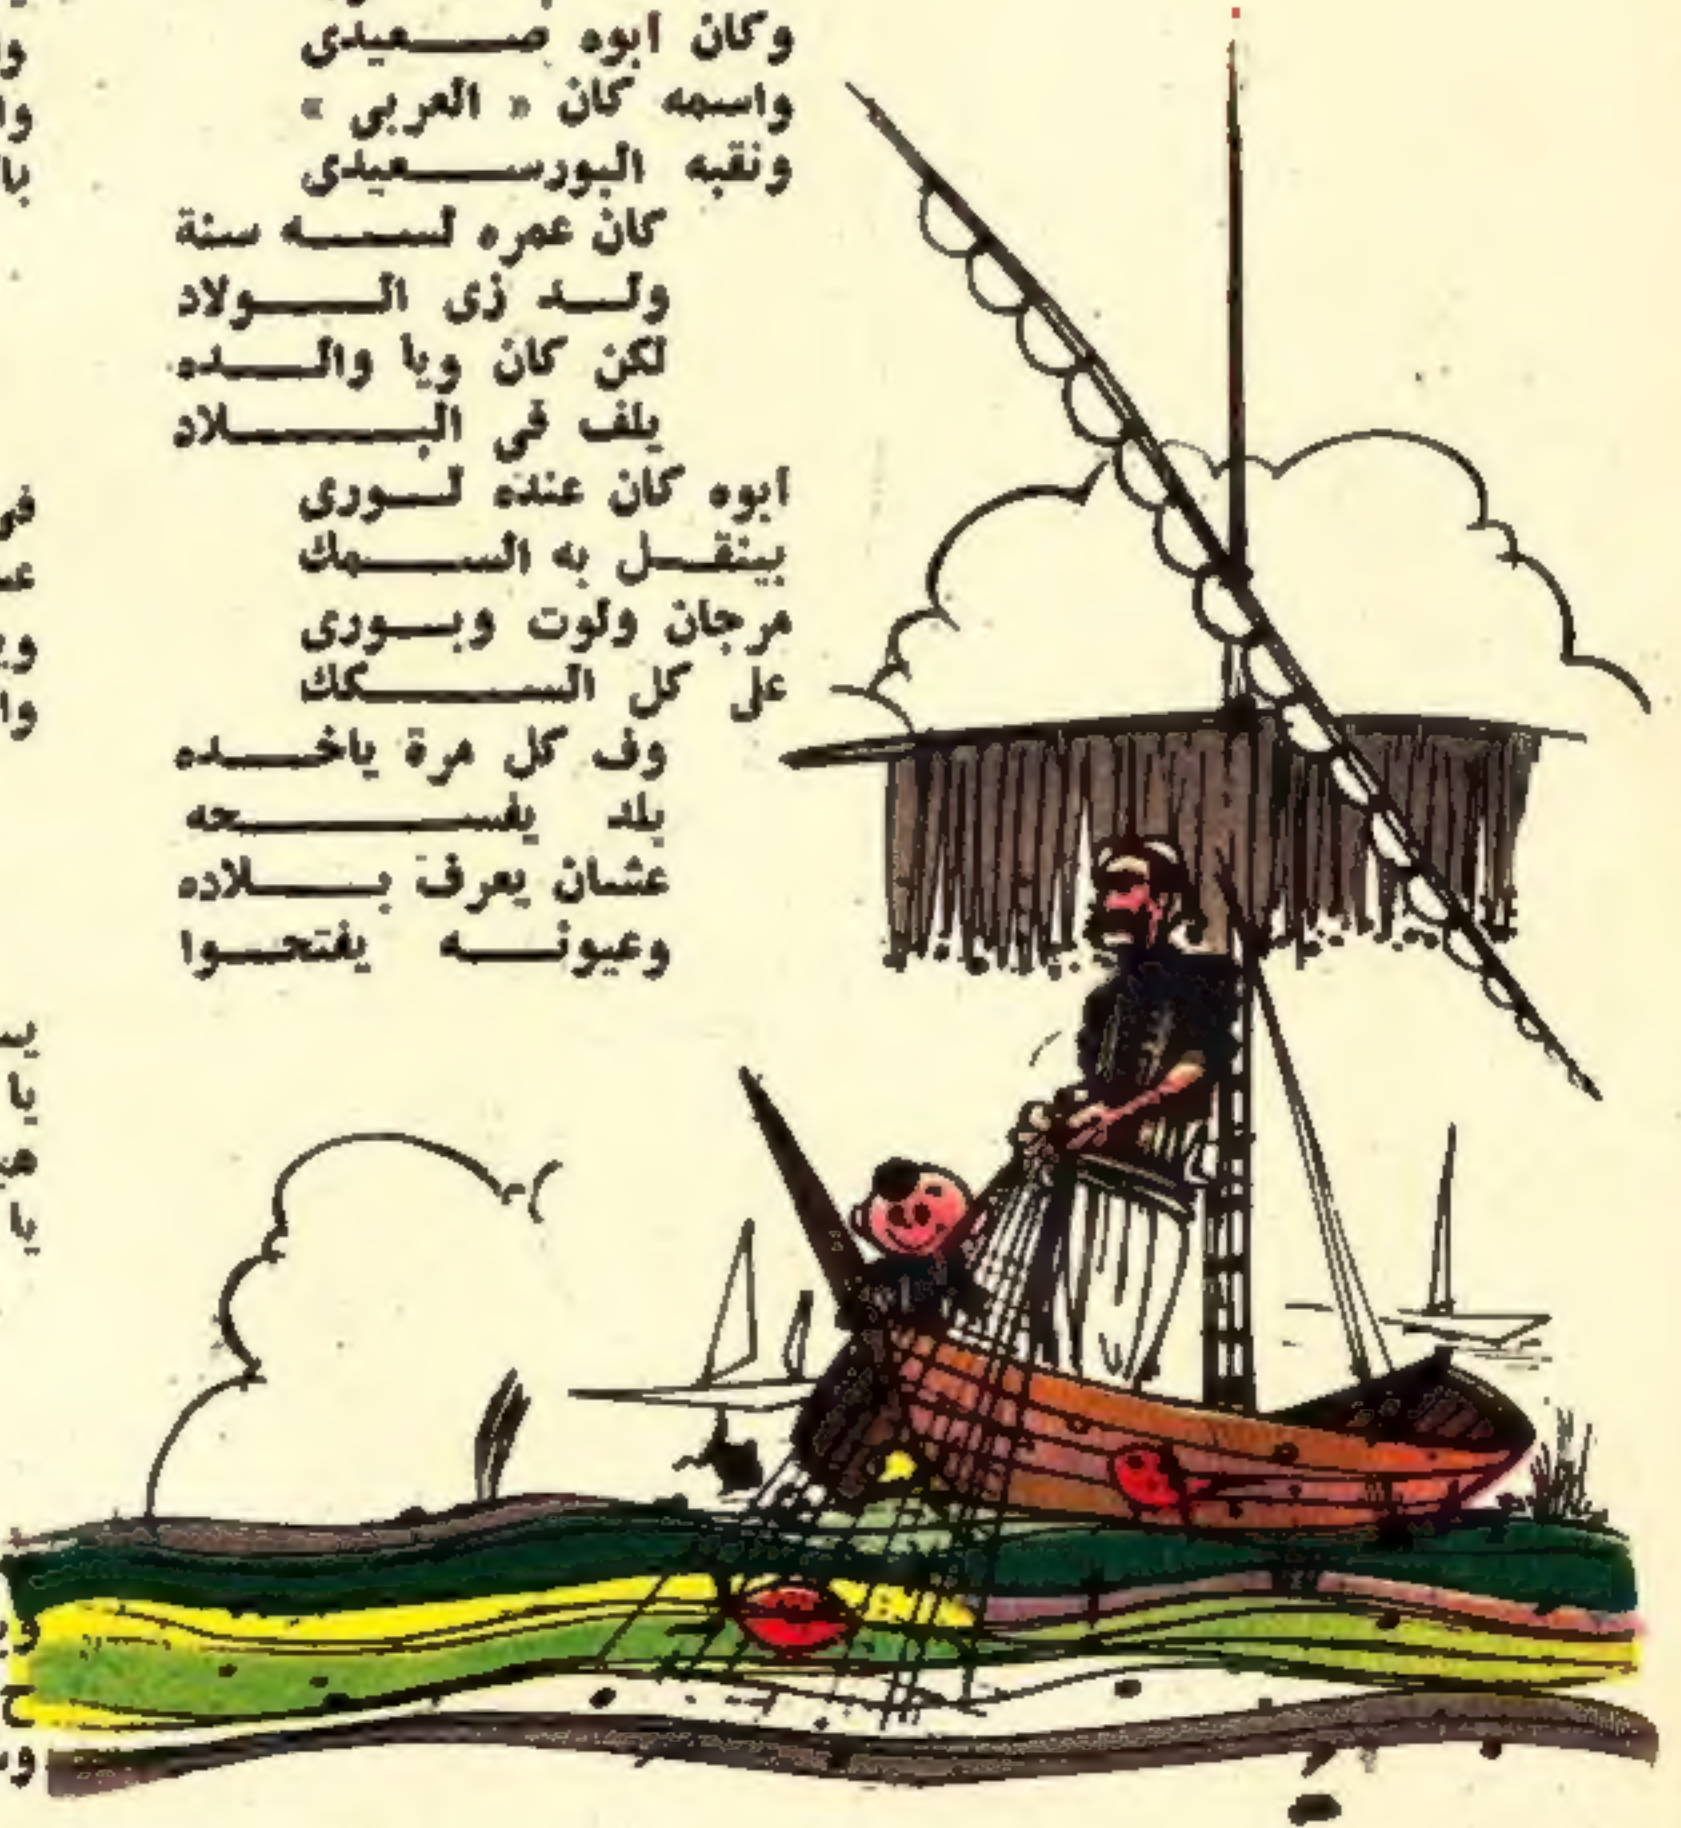 وكان ابوه صعيدى
واسمه كان « العربى »
ونقبه البورسعيدى
كان عمره لسه سنة
ولد زى الولاد
لكن كان ويا والده
يلف فى البلاد
ابوه كان عنده لورى
بينقل به السمك
مرجان ولوت وبورى
على كل السكك
وف كل مرة ياخده
بلد يفسحه
عشان يعرف بلاده
وعيونه يفتحوا